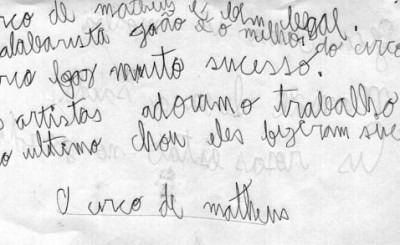 rco de matheus é bem legal.
alabarista joão é o melhor do circo
rco faz muito sucesso.
artistas adoram o trabalho
o ultimo chou eles fizeram suc
O circo de matheus